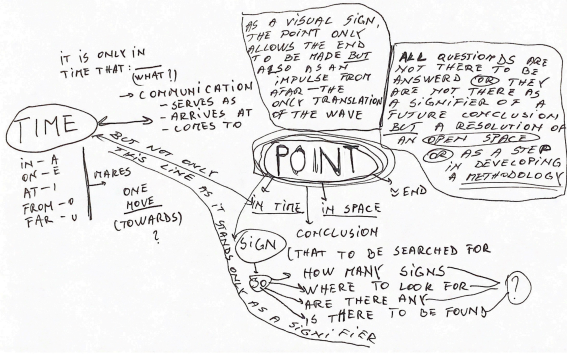 IT IS ONLY IN
TIME THAT:
(WHAT?!)
→ COMMUNICATION
- SERVES AS
- ARRIVES AT
- COMES TO
TIME
IN - A
ON - E
AT - I
FROM - O
FAR - U
MAKES
ONE
MOVE
(TOWARDS)
?
BUT NOT ONLY
THIS LINE AS IT STANDS ONLY AS A SIGNIFIER
AS A VISUAL SIGN,
THE POINT ONLY
ALLOWS THE END
TO BE MADE BUT
ALSO AS AN
IMPULSE FROM
AFAR — THE
ONLY TRANSLATION
OF THE WAVE
ALL QUESTIONDS ARE
NOT THERE TO BE
ANSWERD (OR) THEY
ARE NOT THERE AS
A SIGNIFIER OF A
FUTURE CONCLUSION
BUT A RESOLUTION OF
AN OPEN SPACE
(OR) AS A STEP
IN DEVELOPING
A METHODOLOGY
POINT
IN TIME
IN SPACE
END
CONCLUSION
(THAT TO BE SEARCHED FOR
SIGN
SO
HOW MANY SIGNS
WHERE TO LOOK FOR
ARE THERE ANY
IS THERE TO BE FOUND
?